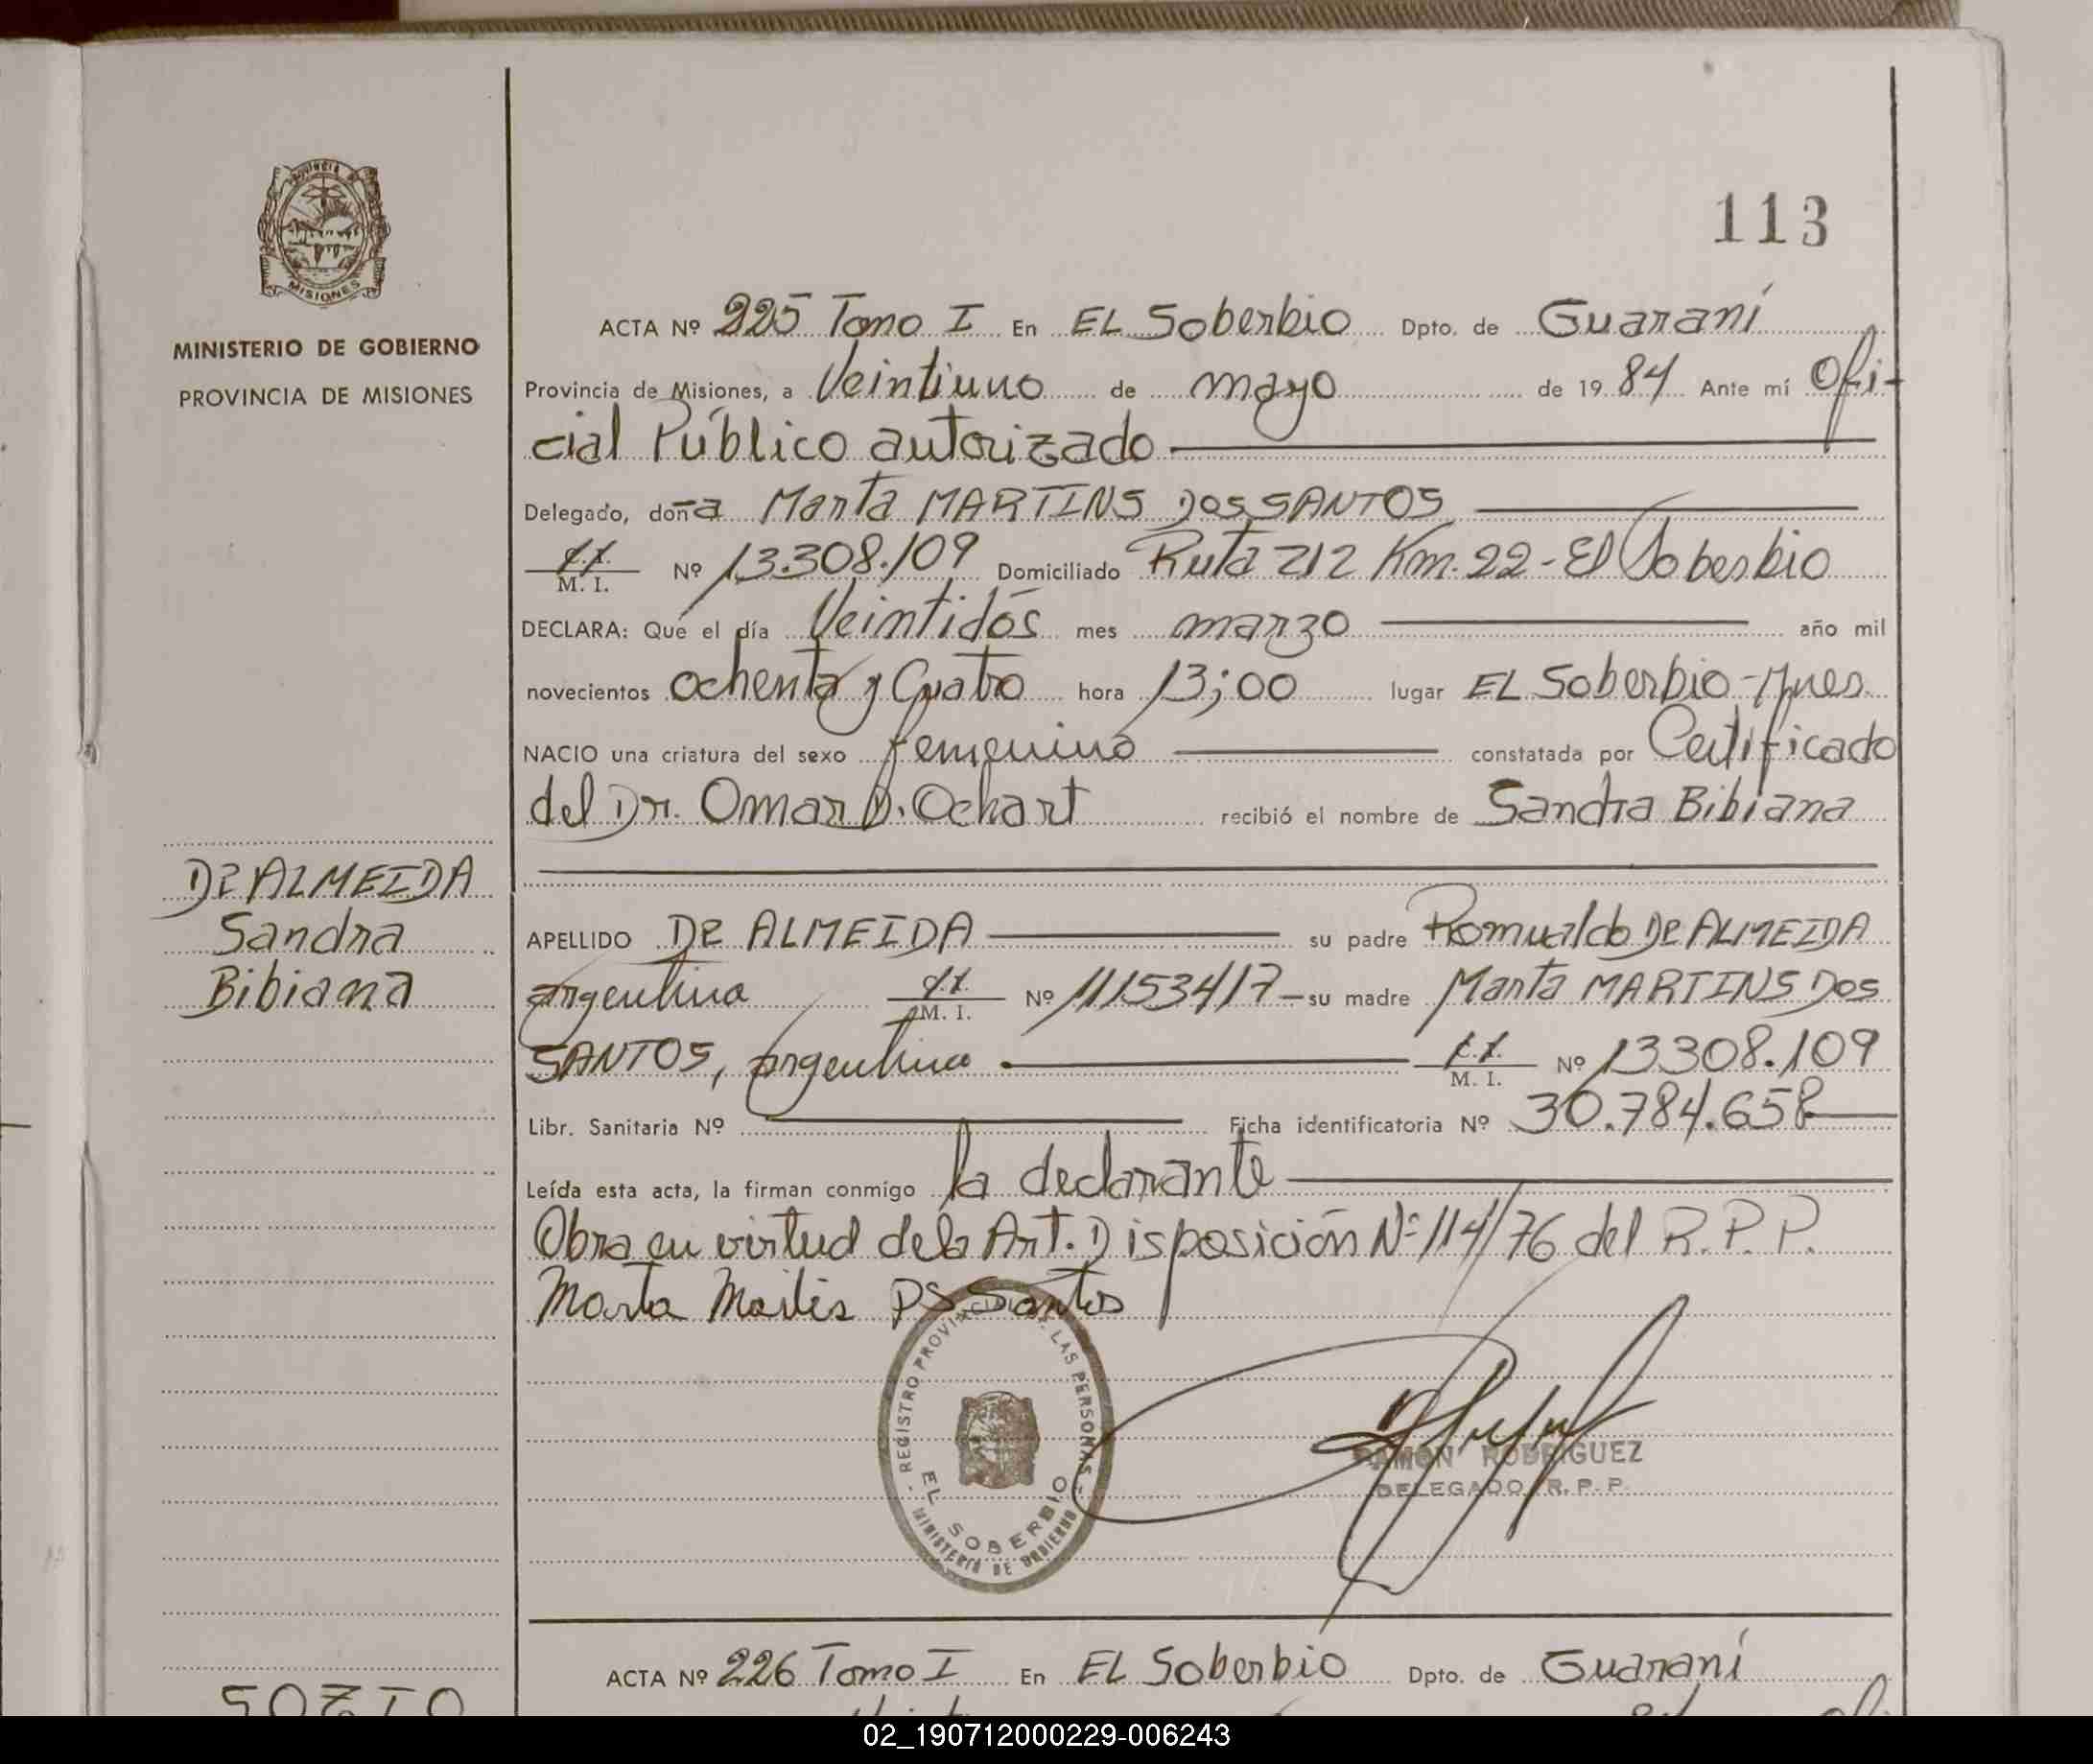 113
PROVINCIA DE
MISIONES
MINISTERIO DE GOBIERNO
PROVINCIA DE MISIONES
ACTA Nº 225 Tomo I En EL Soberbio Dpto. de Guaraní
Provincia de Misiones, a Veintiuno de mayo de 1984 Ante mí Ofi-
cial Público autorizado
Delegado, doña Marta MARTINS DOS SANTOS
M. I. Nº 13.308.109 Domiciliado Ruta 212 Km. 22 - El Soberbio
DECLARA: Que el día Veintidós mes marzo año mil
novecientos ochenta y Cuatro hora 13;00 lugar EL Soberbio - Mnes
NACIO una criatura del sexo femenino constatada por Certificado
del Dr. Omar D. Ochart recibió el nombre de Sandra Bibiana
DE ALMEIDA
Sandra
Bibiana
APELLIDO DE ALMEIDA su padre Romualdo DE ALMEIDA
argentina M. I. Nº 11153417 - su madre Marta MARTINS DOS
SANTOS, argentina M. I. Nº 13308.109
Libr. Sanitaria Nº Ficha identificatoria Nº 30.784.658
Leída esta acta, la firman conmigo la declarante
Obra en virtud de la Art. Disposición Nº 114/76 del R.P.P.
Marta Martis DS Santos
REGISTRO PROVINCIAL DE LAS PERSONAS
EL SOBERBIO
MINISTERIO DE GOBIERNO
RAMON RODRIGUEZ
DELEGADO R. P. P.
ACTA Nº 226 Tomo I En EL Soberbio Dpto. de Guaraní
02_190712000229-006243